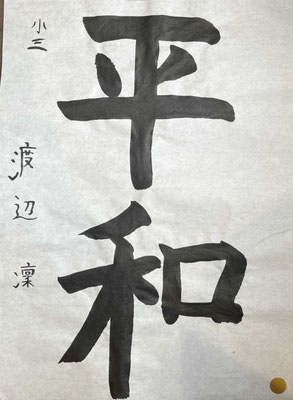 平和
小三
渡辺 凜